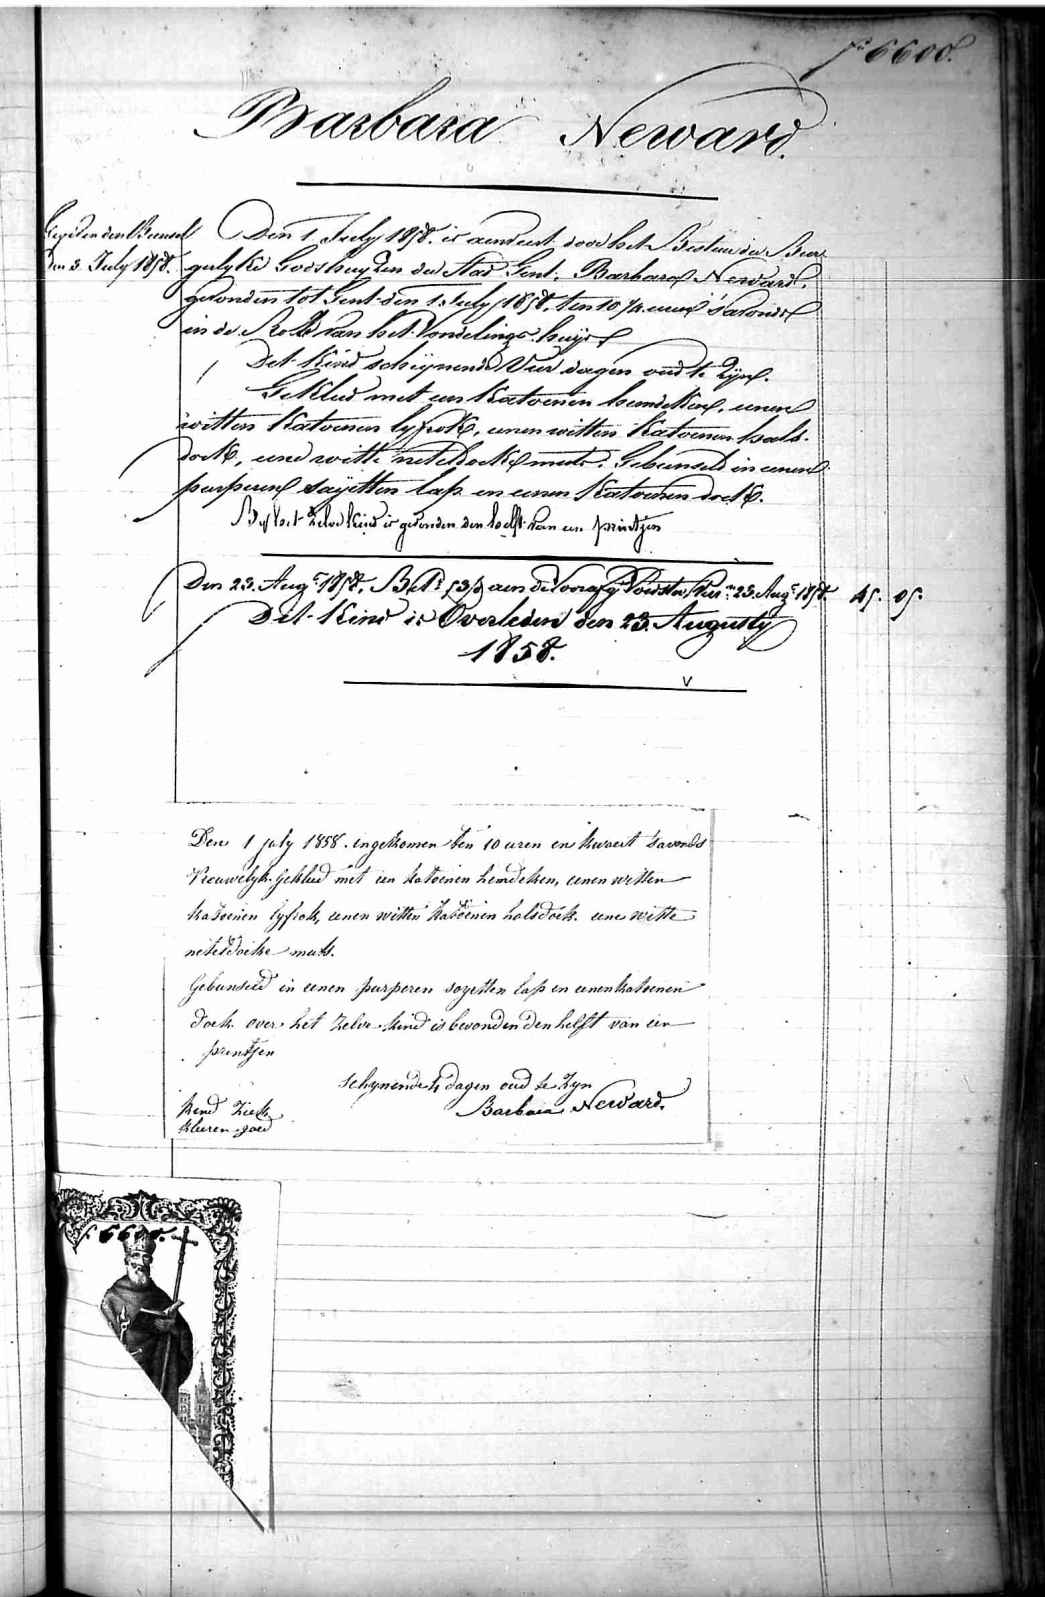 fo 6600.
Barbara Neward.
Den 1 July 1858. is aenveert door het Bestier der Bur-
den 3 July 1858.
gerlyke Godshuyzen der Stad Gent, Barbara Neward,
gevonden tot Gent den 1 July 1858, ten 10 1/4 uren 's avonds
in de Rolle van het Vondelings-huys
Dit Kind schijnende Vier dagen oud te Zijn.
Gekleed met een Katoenen hemdeken, eenen
witten Katoenen lyfrok, eenen witten Katoenen hals-
doek, eene witte neteldoeke muts. Gebunseld in eenen
purperen sayetten lap en eenen Katoenen doek.
By het zelve kind is gevonden den helft van een printjen
Den 23. Augt 1858, aen de 23. Augt 1858 45. 05.
Dit Kind is Overleden den 23. Augusty
1858.
v
Den 1 july 1858. ingekomen ten 10 uren en kwaert savonds
Vrouwelyk. Gekleed met een katoenen hemdeken, eenen witten
katoenen lyfrok, eenen witten katoenen halsdoek. eene witte
neteldoeke muts.
Gebunseld in eenen purperen sayetten lap en eenen katoenen
doek. over het zelve kind is bevonden den helft van een
printjen
schynende 4 dagen oud te Zyn
Barbara Neward.
Kind Ziek
kleeren goed
f 6600.